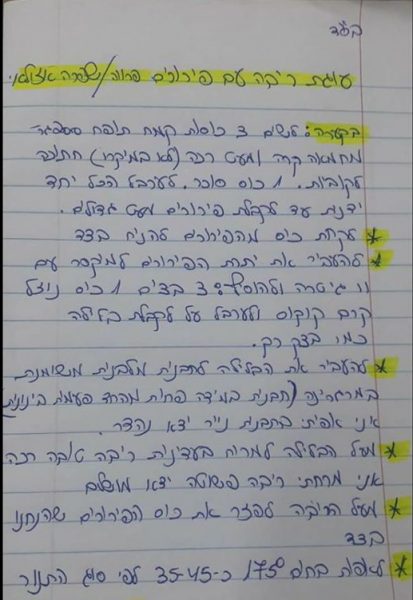 בס״ד
עוגת ריבה עם פירורים פרווה/שפרה אזולאי
בקערה: לשים 3 כוסות קמח תופח 
מחמאה קרה ומעט רכה (לא במיקרו) חתוכה
לקוביות. 1 כוס סוכר. לערבל הכל יחד
ידנית עד לקבלת פירורים מעט גדולים.
* לקחת כוס מהפירורים להניח בצד
* להעביר את יתרת הפירורים למיקסר עם
וו גיטרה ולהוסיף: 3 בצים 1 כוס נוזל
קרם קוקוס ולערבל עד לקבלת בלילה
כמו בצק רק.
* להעביר את הבלילה לתבנית מלבנית משומנת
במרגרינה (תבנית במידה פחות מהחד פעמית בינונית)
אני אפיתי בתבנית נייר יצא נהדר.
* מעל הבלילה למרוח בעדינות ריבה טובה רכה
אני מרחתי ריבה פשוטה יצא מושלם
* מעל הריבה לפזר את כוס הפירורים שהנחנו
בצד
* לאפות בחום 175° כ-35-45 לפי סוג התנור